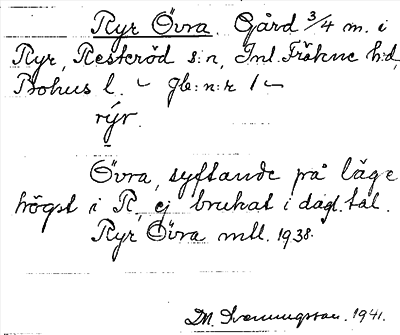 Ryr Övra. Gård 3/4 m. i
Ryr, Resteröd s:n, Inl. Fräkne h:d,
Bohus l. – Jb:n:r 1 –
rýr.
Övra, syftande på läge
högst i R, ej brukat i dagl. tal.
Ryr Övra mtl. 1938.
D.M. Svenningsson. 1941.